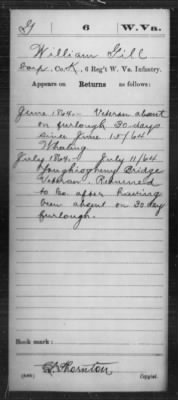 G 6 W.Va.
William Gill
Corp., Co. K, 6 Reg't W. Va. Infantry.
Appears on Returns as follows:
June 1864.– Veteran absent
on furlough 30 days
since June 15/64
Wheeling
July 1864.– July 11/64
Youghiogheny Bridge
Veteran. Returned
to Co. after having
been absent on 30 day
furlough.
Book mark:
Thornton
Copyist.